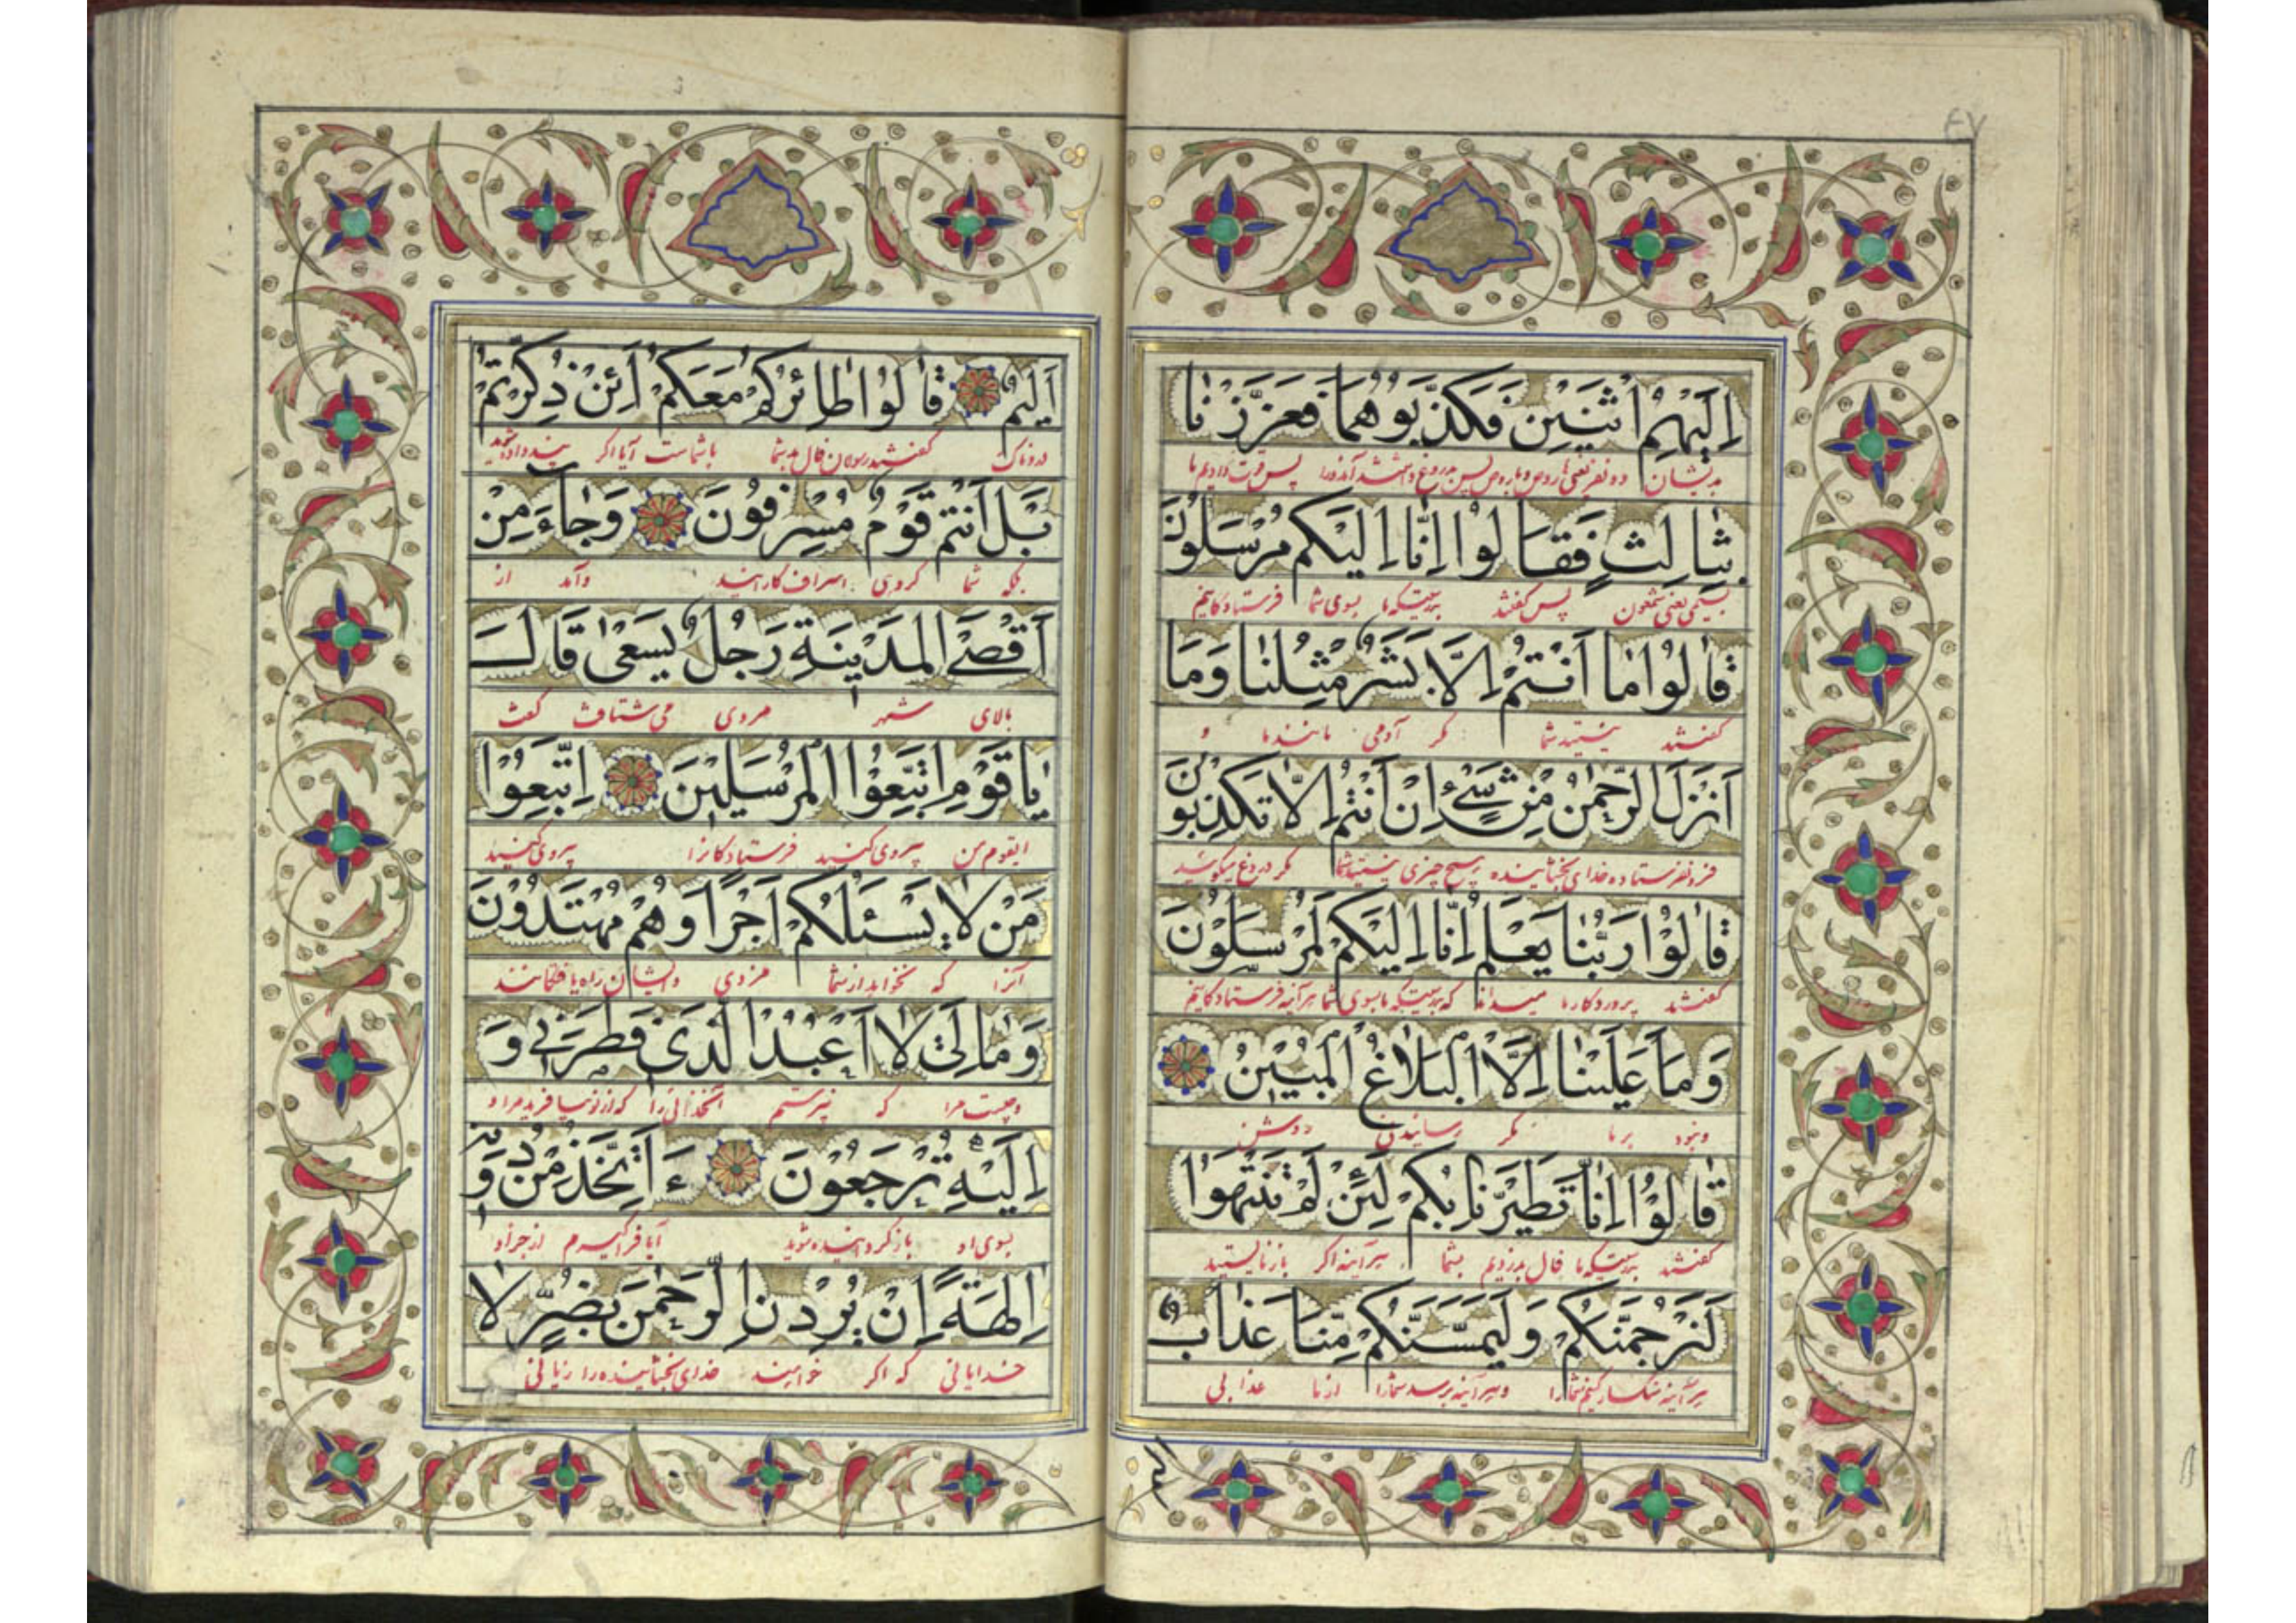 ٤٧
اِلَيْهِمُ اثْنَيْنِ فَكَذَّبُوهُمَا فَعَزَّزْنَا
بدیشان دو نفر یعنی پس بدروغ داشتند آندورا پس قوت دادیم ما
بِثَالِثٍ فَقَالُوا اِنَّا اِلَيْكُم مُرْسَلُونَ
بسیمی یعنی شمعون پس گفتند بدرستیکه ما بسوی شما فرستادکانیم
قَالُوا مَا اَنْتُمْ اِلَّا بَشَرٌ مِثْلُنَا وَمَا
گفتند نیستید شما مکر آدمی مانند ما و
اَنْزَلَ الرَّحْمٰنُ مِنْ شَیْءٍ اِنْ اَنْتُمْ اِلَّا تَكْذِبُونَ
فرو نفرستاده خدای بخشاینده هیچ چیزی نیستید شما مکر دروغ میکوئید
قَالُوا رَبُّنَا يَعْلَمُ اِنَّا اِلَيْكُمْ لَمُرْسَلُونَ
گفتند پروردکار ما میداند که بدرستیکه ما بسوی شما هرآینه فرستادکانیم
وَمَا عَلَيْنَا اِلَّا الْبَلَاغُ الْمُبِينُ
و نبود بر ما مکر رسانیدن روشن
قَالُوا اِنَّا تَطَيَّرْنَا بِكُمْ لَئِنْ لَمْ تَنْتَهُوا
گفتند بدرستیکه ما فال بد زدیم بشما هرآینه اکر باز نایستید
لَنَرْجُمَنَّكُمْ وَلَيَمَسَّنَّكُمْ مِنَّا عَذَابٌ
هرآینه سنکسار کنیم شما را و هرآینه برسد شما را از ما عذابی
اَلِيمٌ قَالُوا طَائِرُكُمْ مَعَكُمْ اَئِنْ ذُكِّرْتُمْ
دردناک گفتند رسولان فال بد شما با شماست آیا اکر پند داده شوید
بَلْ اَنْتُمْ قَوْمٌ مُسْرِفُونَ وَجَاءَ مِنْ
بلکه شما کروهی اسراف کارانید و آمد از
اَقْصَی الْمَدِينَةِ رَجُلٌ يَسْعٰى قَالَ
بالای شهر مردی می شتافت گفت
يَا قَوْمِ اتَّبِعُوا الْمُرْسَلِينَ اِتَّبِعُوا
ایقوم من پیروی کنید فرستادکانرا پیروی کنید
مَنْ لَا يَسْئَلُكُمْ اَجْرًا وَهُمْ مُهْتَدُونَ
آنرا که نخواهد از شما مزدی و ایشان راه یافتکانند
وَمَا لِیَ لَا اَعْبُدُ الَّذِی فَطَرَنِی وَ
و چیست مرا که نپرستم آنخدائی را که از نو بیافرید مرا و
اِلَيْهِ تُرْجَعُونَ ءَاَتَّخِذُ مِنْ دُونِهِ
بسوی او باز کردانیده شوید آیا فرا کیرم از جز او
اٰلِهَةً اِنْ يُرِدْنِ الرَّحْمٰنُ بِضُرٍّ لَا
خدایانی که اکر خواهند خدای بخشاینده را زیانی